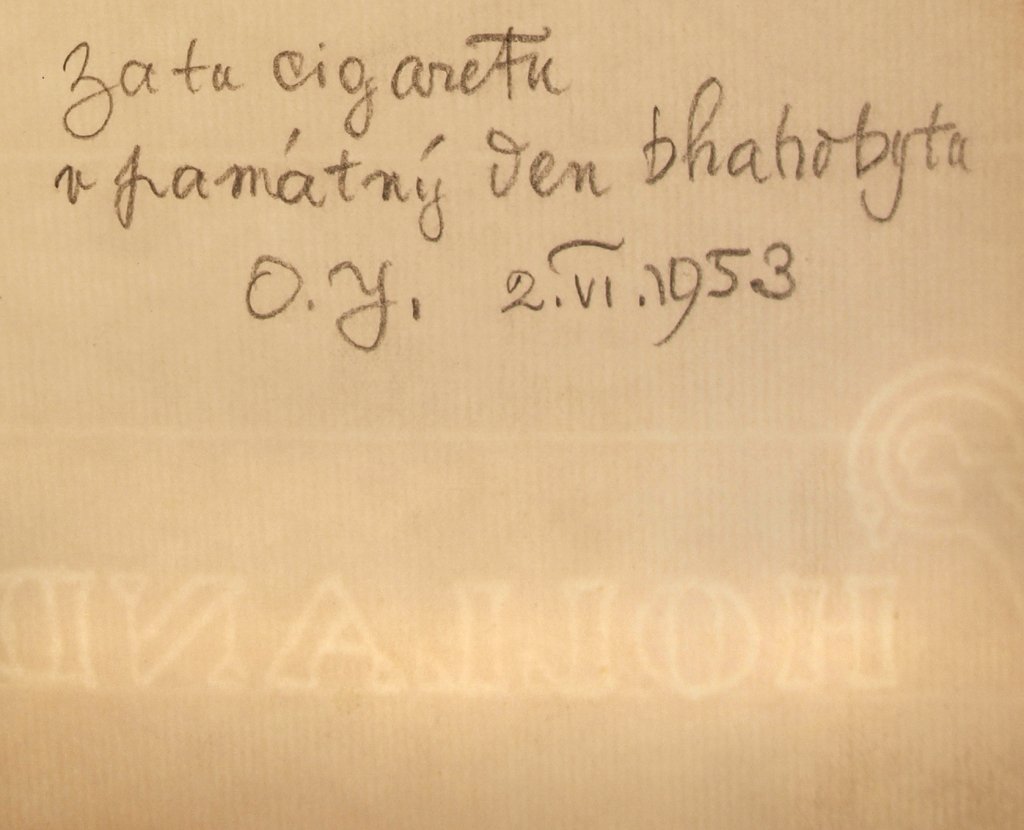 Za tu cigaretu
v památný den blahobytu
O. Y. 2.VI.1953
HOLLAND